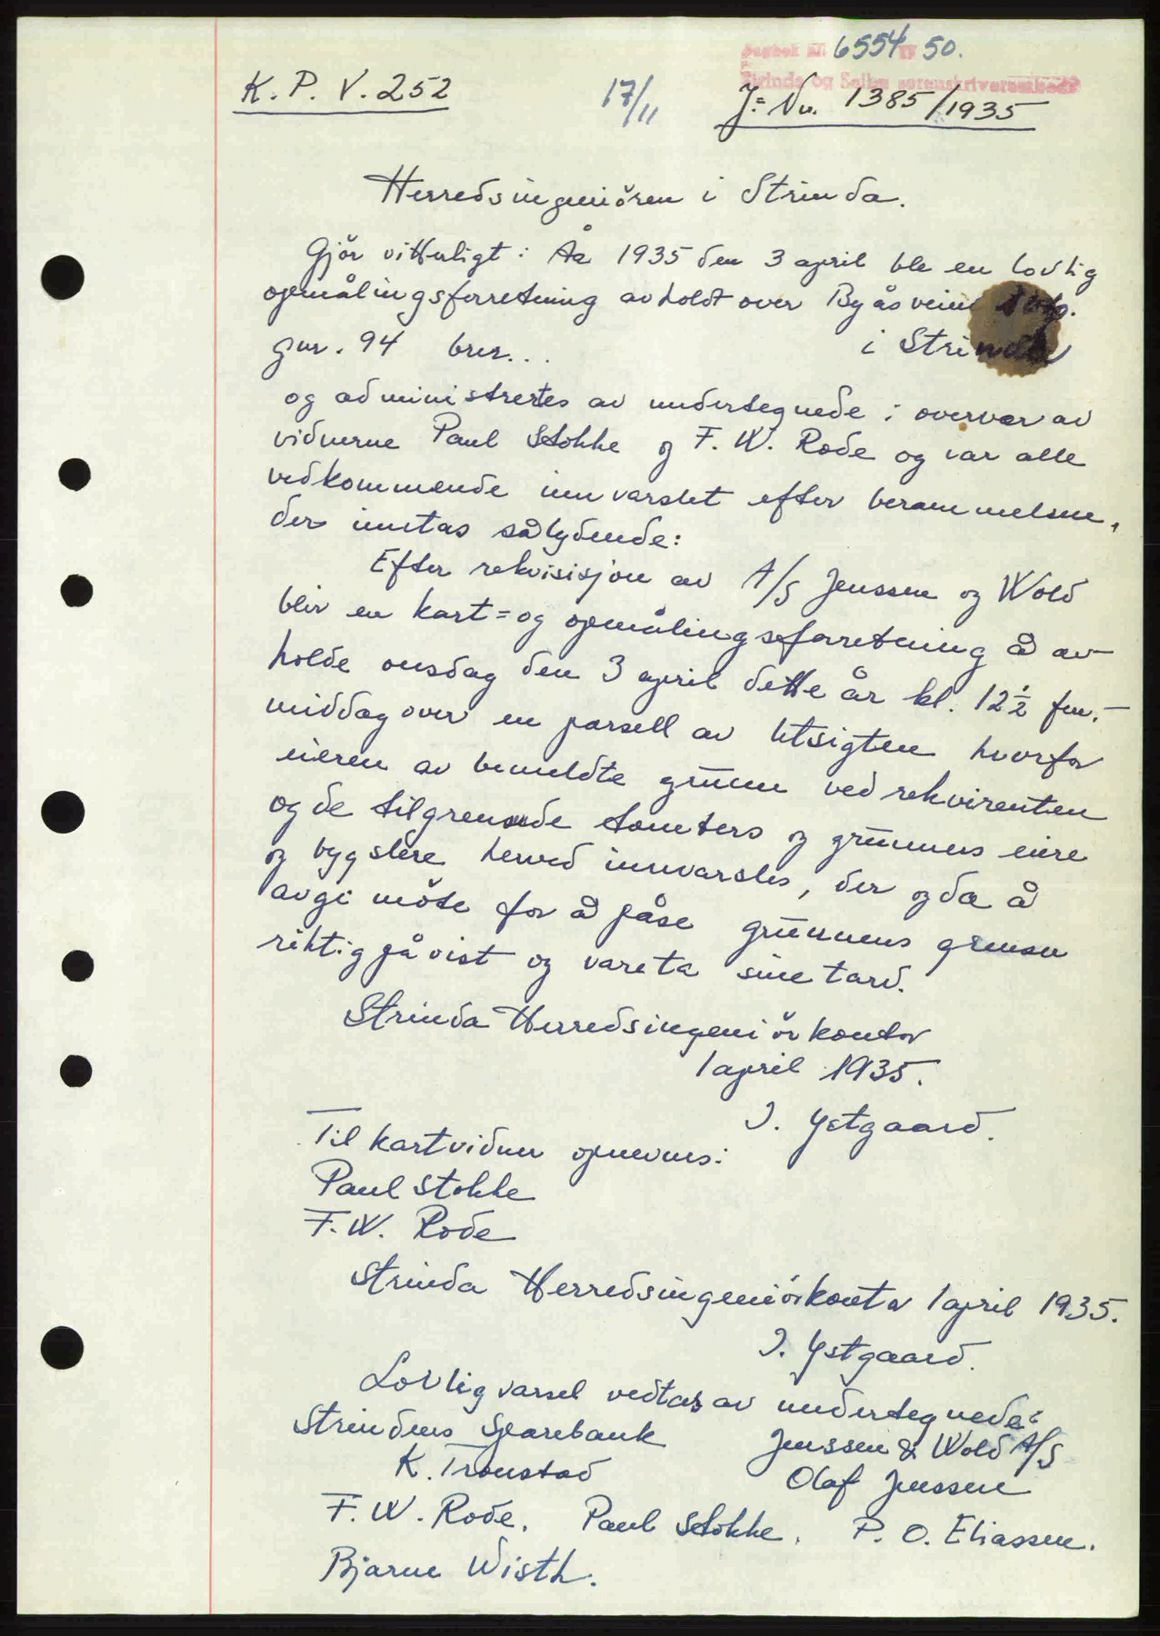 Dagbok nr. 6554 19 50.
Strinda og Selbu sorenskriverembede
K. P. V. 252
17/11
J= Nr. 1385/1935
Herredsingeniören i Strinda.
Gjör vitterligt: Aa 1935 den 3 april ble en lovlig
opmålingsforretning avholdt over Byåsveien
gnr. 94 bnr... i Strinda
og administrertes av undertegnede i overvær av
vidnerne Paul Stokke og F. W. Rode og var alle
vedkommende innvarslet efter berammelsen,
der inntas sålydende:
Efter rekvisisjon av A/S Jenssen og Wold
blir en kart= og opmålingsforretning å av-
holde onsdag den 3 april dette år kl. 12 1/2 fm.-
middag over en parsell av Utsigten hvorfor
eieren av bemeldte grunn ved rekvirenten
og de tilgrensende tomters og grunners eiere
og bygslere herved innvarsles, der og da å
avgi möte for å påse grunnens grenser
riktig påvist og vareta sine tarv.
Strinda Herredsingeniörkontor
1 april 1935.
I. Ystgaard.
Til kartvidner opnevnes:
Paul Stokke
F. W. Rode
Strinda Herredsingeniörkontor 1 april 1935.
I. Ystgaard.
Lovlig varsel vedtas av undertegnede:
Strindens Sparebank Jenssen & Wold A/S
K. Tronstad Olaf Jenssen
F. W. Rode. Paul Stokke. P. O. Eliassen.
Bjarne Wisth.